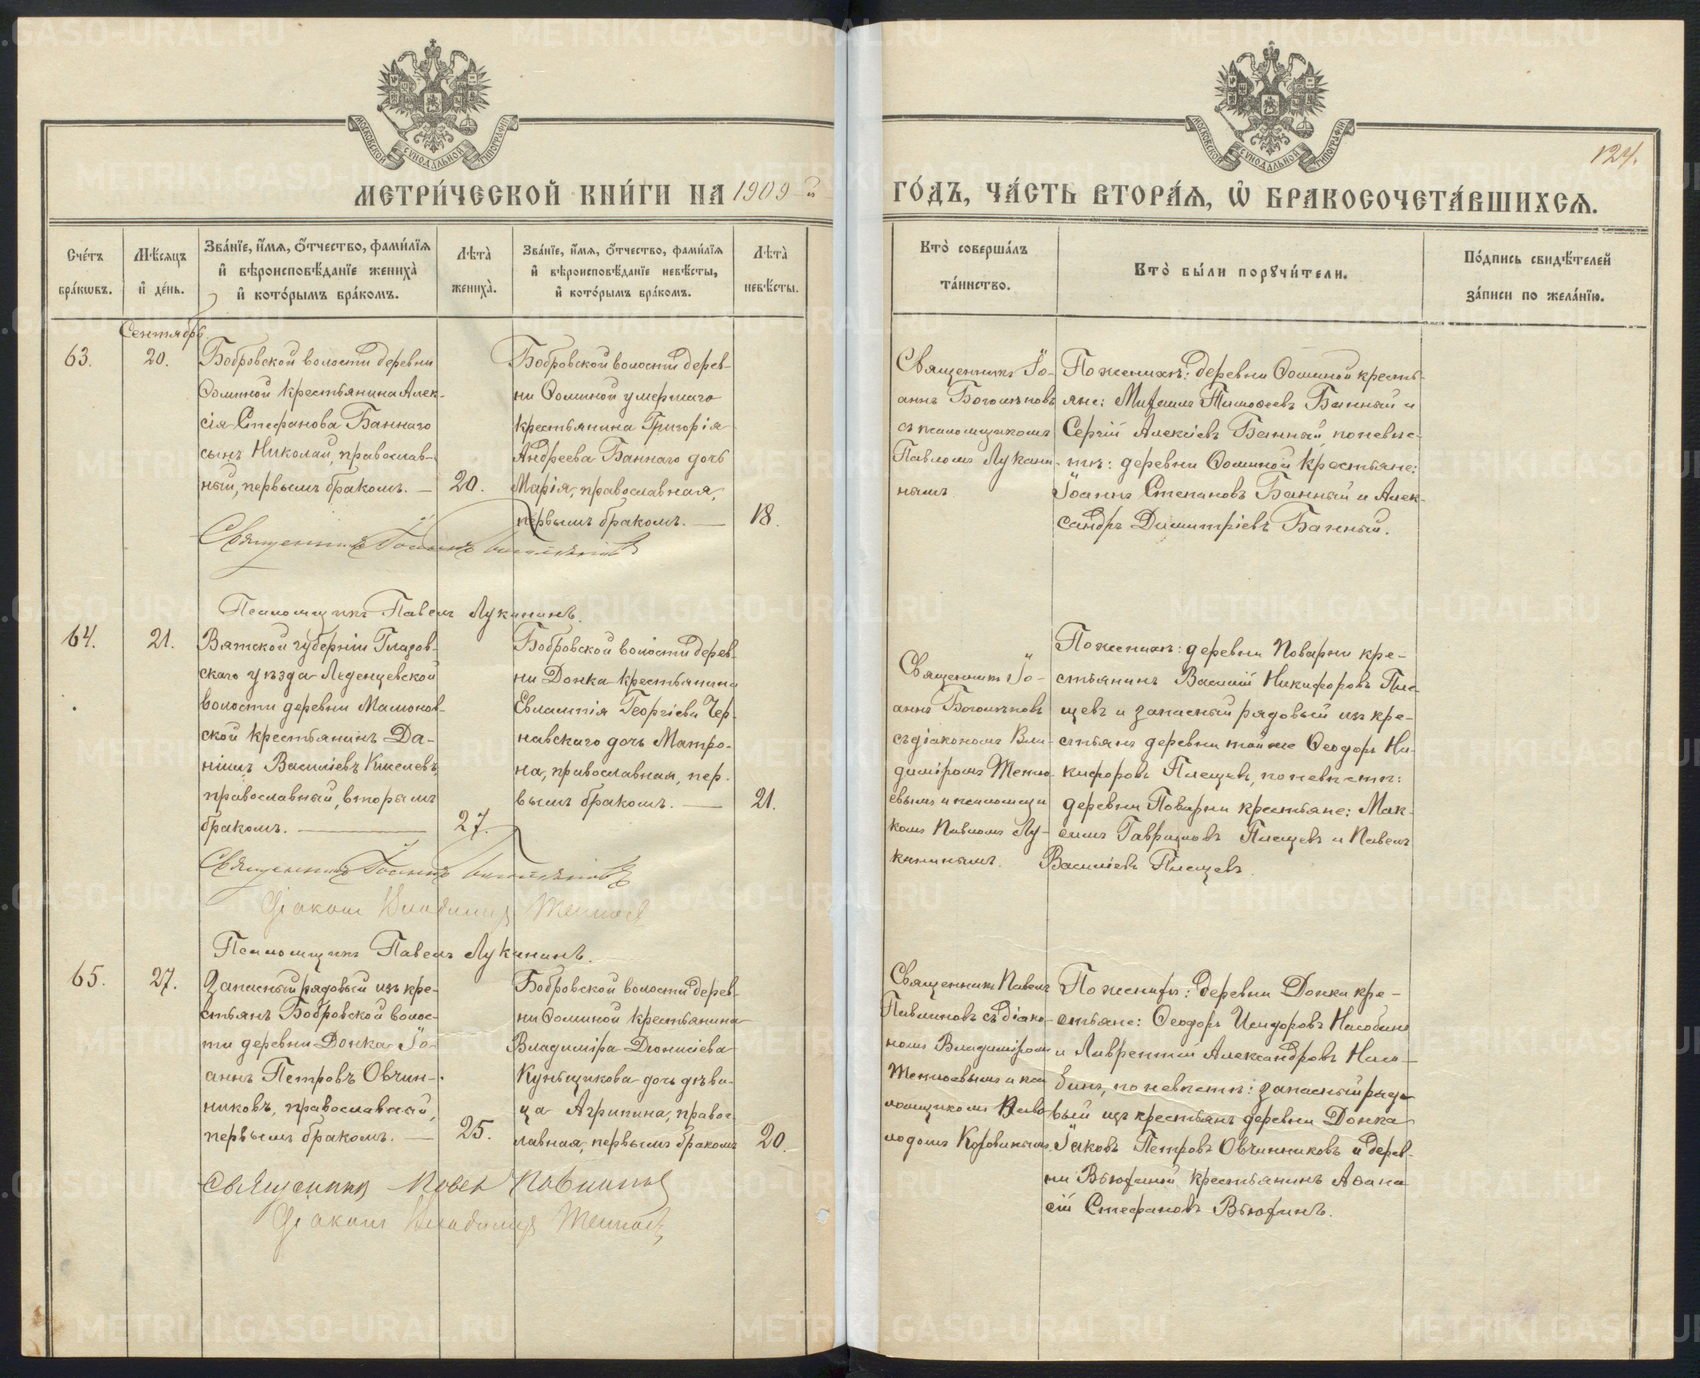 МЕТРИ́ЧЕСКОЙ КНИ́ГИ НА 1909 й
ГО́ДЪ, ЧА́СТЬ ВТОРА́Я, Ѡ БРАКОСОЧЕТА́ВШИХСЯ.
124.
Сче́тъ бра́кѡвъ.
Мѣ́сяцъ и де́нь.
Зва́нїе, и́мя, ѻ҆́тчество, фами́лїя и вѣроисповѣ́данїе жениха̀ и кото́рымъ бра́комъ.
Лѣта̀ жениха̀.
Зва́нїе, и́мя, ѻ҆́тчество, фами́лїя и вѣроисповѣ́данїе невѣ́сты, и кото́рымъ бра́комъ.
Лѣта̀ невѣ́сты.
Кто̀ соверша́лъ та́инство.
Кто̀ бы́ли порꙋчи́тели.
По́дпись свидѣ́телей за́писи по жела́нїю.
Сентябрь
63.
20.
Бобровской волости деревни
Ѳоминой крестьянина Алек-
сія Стефанова Баннаго
сынъ Николай, православ-
ный, первымъ бракомъ. —
20.
Бобровской волости дерев-
ни Ѳоминой умершаго
крестьянина Григорія
Андреева Баннаго дочь
Марія, православная,
первымъ бракомъ. —
18.
Священникъ Іо-
аннъ Богомѣповъ
съ псаломщикомъ
Павломъ Лукани-
нымъ.
По женихѣ: деревни Ѳоминой кресть-
яне: Михаилъ Тимоѳеевъ Банный и
Сергій Алексіевъ Банный, по невѣс-
тѣ: деревни Ѳоминой крестьяне:
Іоаннъ Степановъ Банный и Алек-
сандръ Димитріевъ Банный.
Священникъ Іоаннъ
Псаломщикъ Павелъ Луканинъ.
64.
21.
Вятской губерніи Глазов-
скаго уѣзда Леденцевской
волости деревни Мамонов-
ской крестьянинъ Да-
ніилъ Василіевъ Киселевъ,
православный, вторымъ
бракомъ. —
27.
Бобровской волости дерев-
ни Донка крестьянина
Евлампія Георгіева Чер-
навскаго дочь Матро-
на, православная, пер-
вымъ бракомъ. —
21.
Священникъ Іо-
аннъ Богомѣповъ
съ діакономъ Вла-
диміромъ
и псаломщи
комъ Павломъ Лу-
канинымъ.
По женихѣ: деревни Поварни кре-
стьянинъ Василій Никифоровъ Пле-
щевъ и запасный рядовый изъ кре-
стьянъ деревни той же Ѳеодоръ Ни-
кифоровъ Плещевъ, по невѣстѣ:
деревни Поварни крестьяне: Мак-
симъ Гавриловъ Плещевъ и Павелъ
Василіевъ Плещевъ.
Священникъ Іоаннъ
Діаконъ Владиміръ
Псаломщикъ Павелъ Луканинъ.
65.
27.
Запасный рядовый изъ кре-
стьянъ Бобровской волос-
ти деревни Донка Іо-
аннъ Петровъ Овчин-
никовъ, православный,
первымъ бракомъ. —
25.
Бобровской волости дерев-
ни Ѳоминой крестьянина
Владиміра Діонисіева
Кунгщикова дочь дѣви-
ца Агрипина, правос-
лавная, первымъ бракомъ
20.
Священникъ Павелъ
Павлиновъ съ діако-
номъ Владиміромъ
и пса
ломщикомъ Всево
лодомъ Коровинымъ
По женихѣ: деревни Донки кре-
стьяне: Ѳеодоръ Исидоровъ Насобинъ
и Лаврентій Александровъ Насо-
бинъ, по невѣстѣ: запасный рядо
вый изъ крестьянъ деревни Донка
Іаковъ Петровъ Овчинниковъ и дерев-
ни Вьюхиной крестьянинъ Аѳана
сій Стефановъ Вьюхинъ.
Священникъ Павелъ Павлиновъ
Діаконъ Владиміръ
METRIKI.GASO-URAL.RU